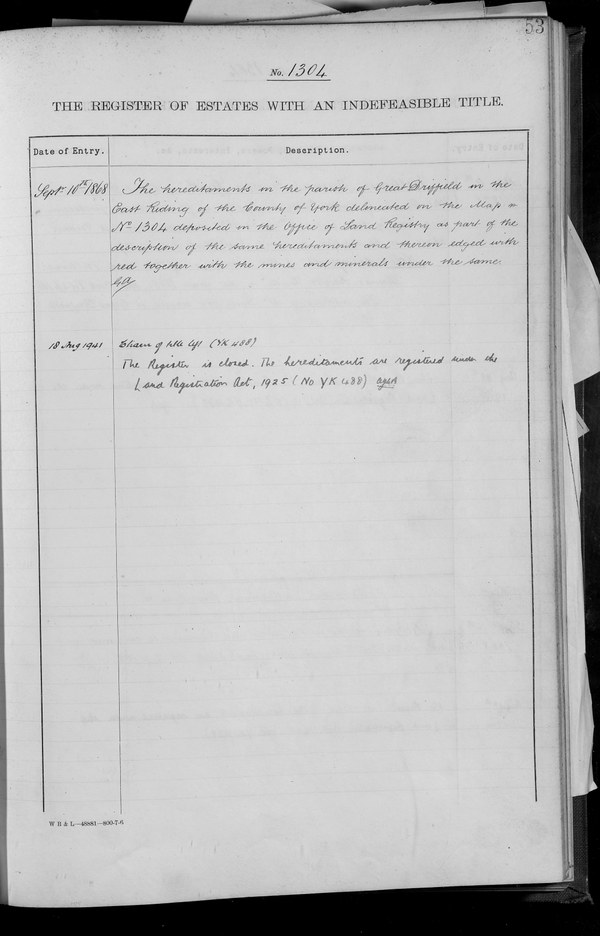 53
No. 1304
THE REGISTER OF ESTATES WITH AN INDEFEASIBLE TITLE.
Date of Entry. Description.
Septr. 10th 1868 The hereditaments in the parish of Great Driffield in the
East Riding of the County of York delineated on the Map
No. 1304 deposited in the Office of Land Registry as part of the
description of the same hereditaments and thereon edged with
red together with the mines and minerals under the same.
18 Aug 1941 (YK 488)
The Register is closed. The hereditaments are registered under the
Land Registration Act, 1925 (No YK 488)
W B & L—48881—800-7-6